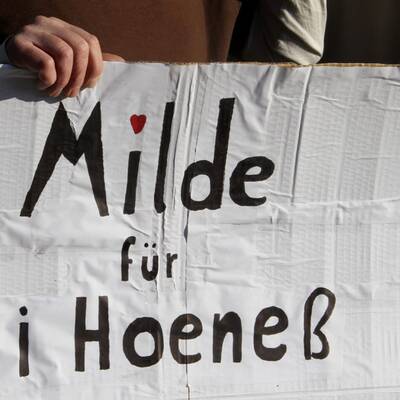 Milde
für
i Hoeneß